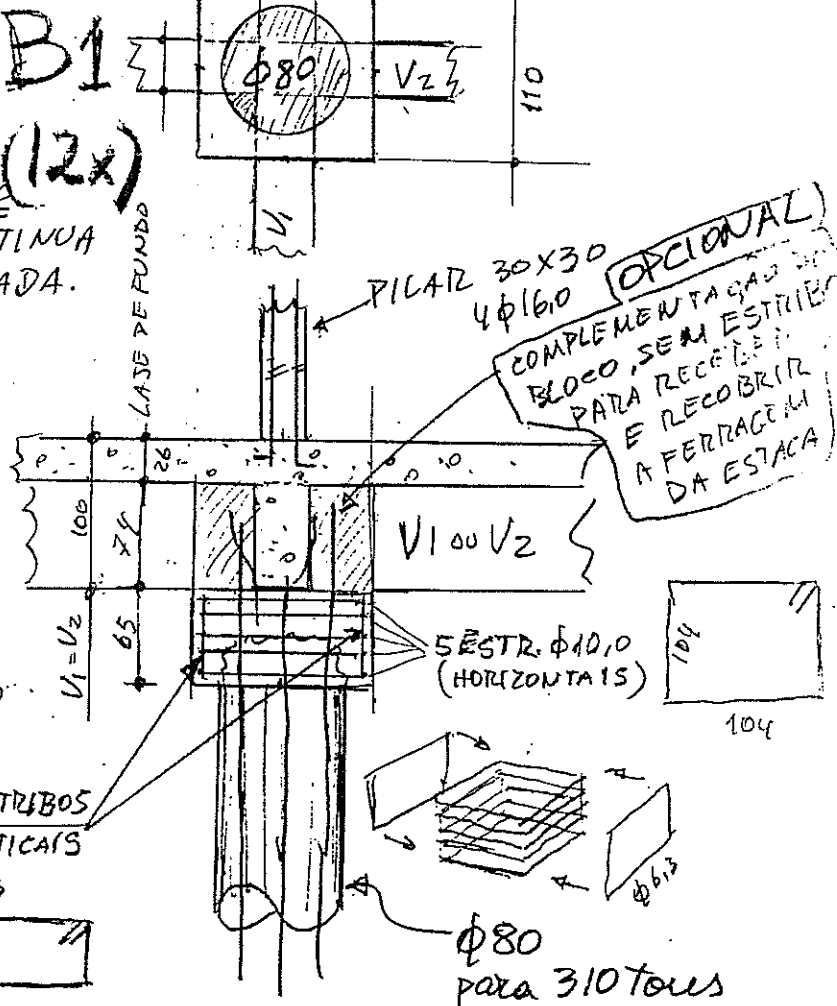 B1
(12x)
Φ80
V2
110
V1
TINUA
ADA.
LAJE DE FUNDO
PILAR 30X30
4 φ 16,0
OPCIONAL
COMPLEMENTAÇÃO DO
BLOCO, SEM ESTRIBO
PARA RECEBER
E RECOBRIR
A FERRAGEM
DA ESTACA
26
100
74
V1 OU V2
V1=V2
65
5 ESTR. φ10,0
(HORIZONTAIS)
104
104
TRIBOS
TICAIS
φ6,3
φ80
para 310 tons